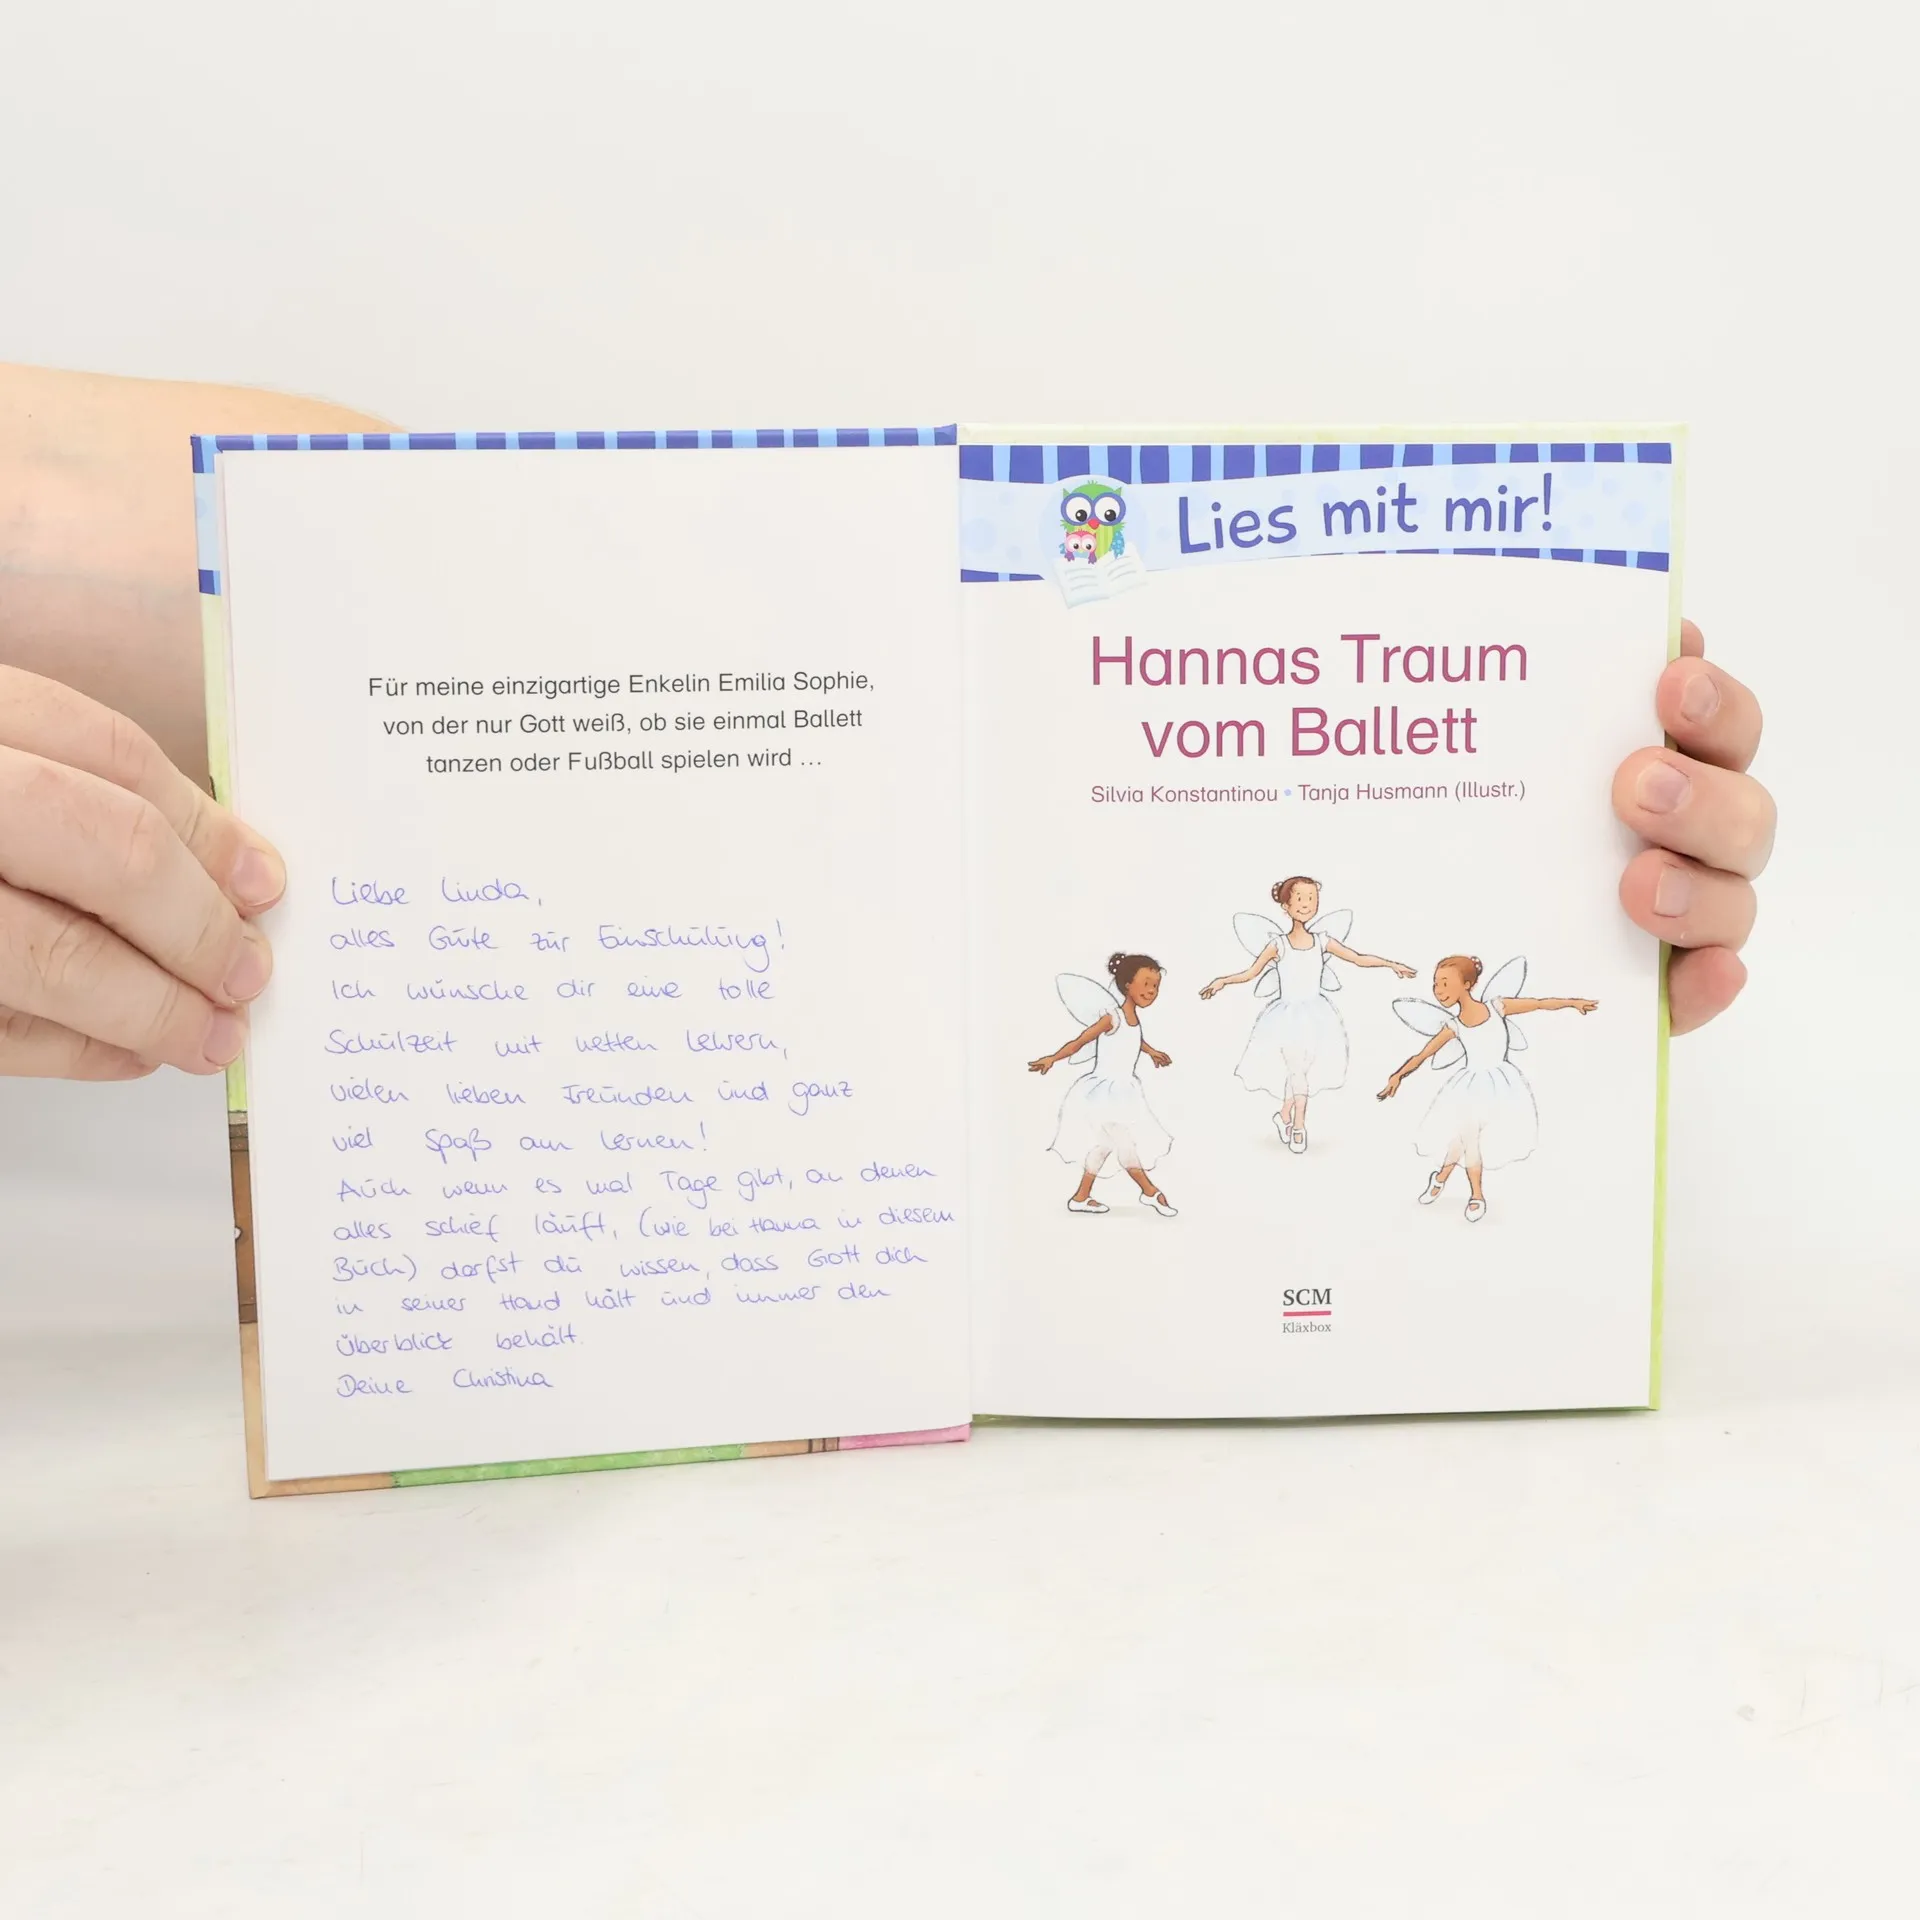 Für meine einzigartige Enkelin Emilia Sophie,
von der nur Gott weiß, ob sie einmal Ballett
tanzen oder Fußball spielen wird ...
Liebe Linda,
alles Gute zur Einschulung!
Ich wünsche dir eine tolle
Schulzeit mit netten Lehrern,
vielen lieben Freunden und ganz
viel Spaß am Lernen!
Auch wenn es mal Tage gibt, an denen
alles schief läuft, (wie bei Hanna in diesem
Buch) darfst du wissen, dass Gott dich
in seiner Hand hält und immer den
Überblick behält.
Deine Christina
Lies mit mir!
Hannas Traum
vom Ballett
Silvia Konstantinou • Tanja Husmann (Illustr.)
SCM
Kläxbox